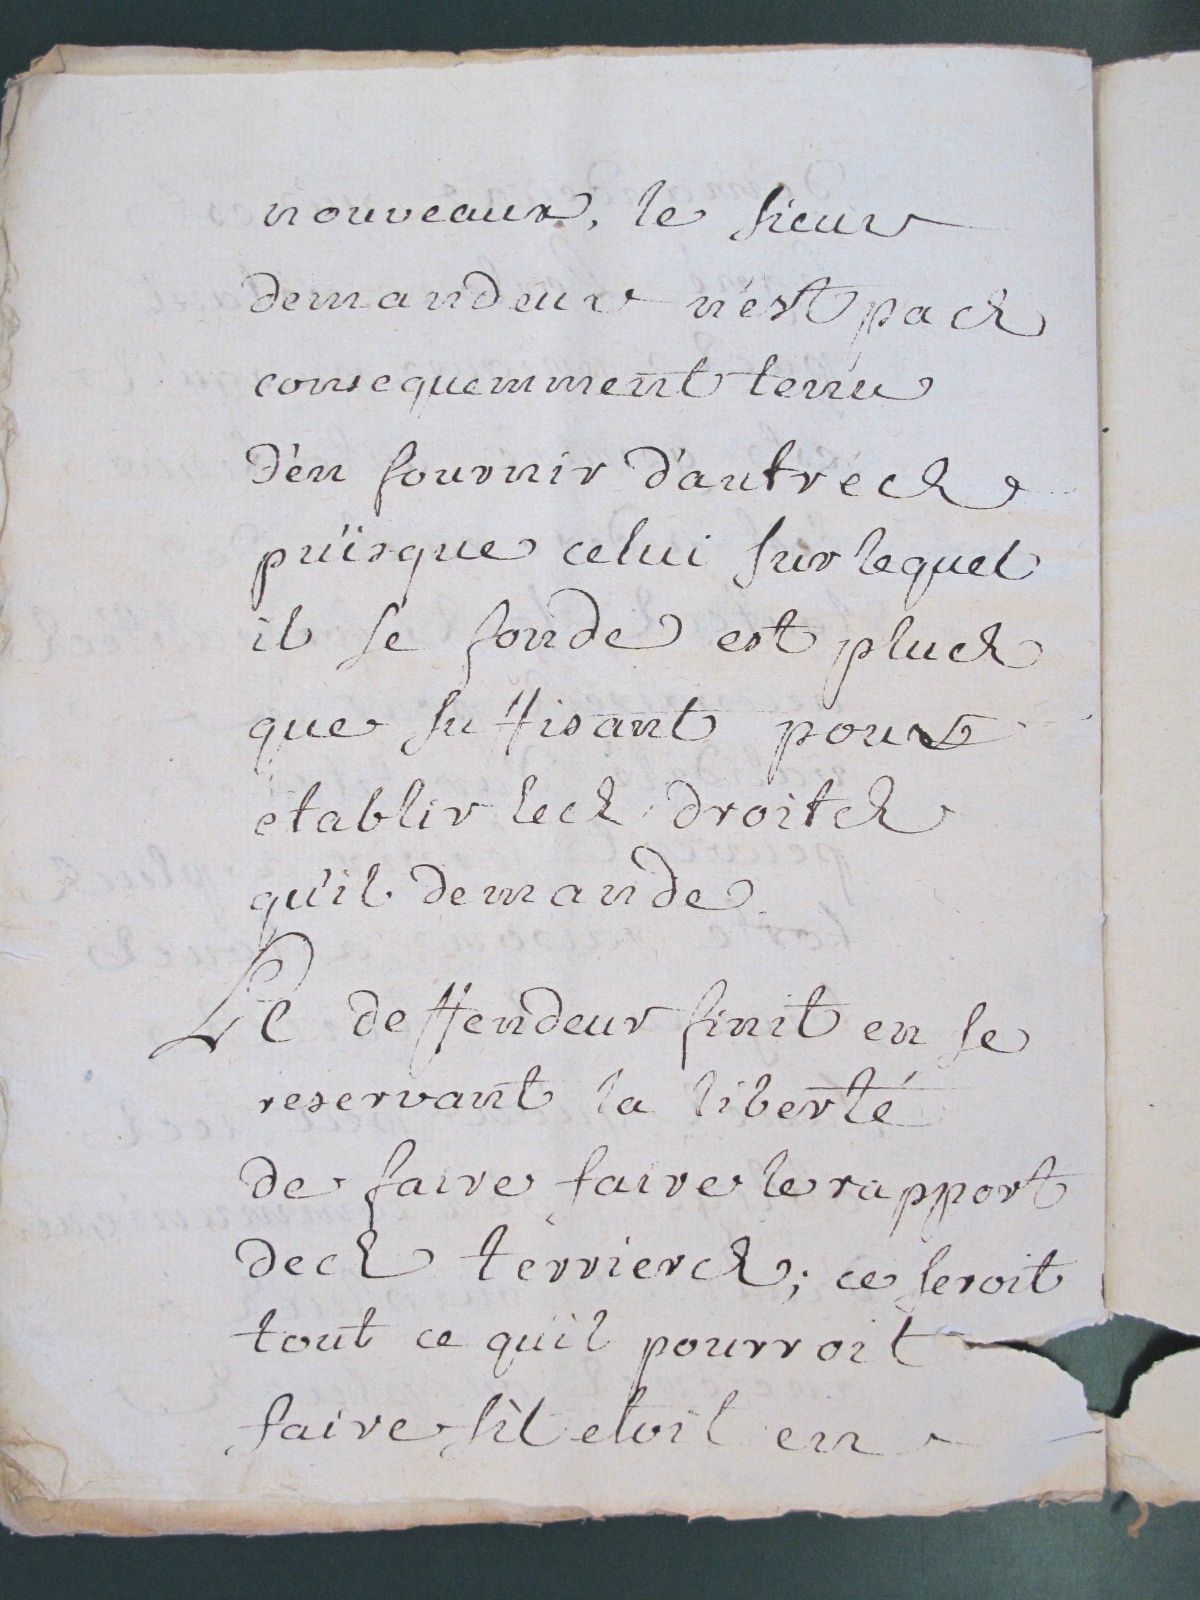 nouveaux, le sieur
demandeur n'est pas
consequemment tenu
d'en fournir d'autres
püisque celui sur lequel
il se fonde est plus
que suffisant pour
etablir les droits
qu'il demande
Le deffendeur finit en se
reservant la liberté
de faire faire le rapport
des terriers; ce seroit
tout ce qu'il pourroit
faire s'il etoit en